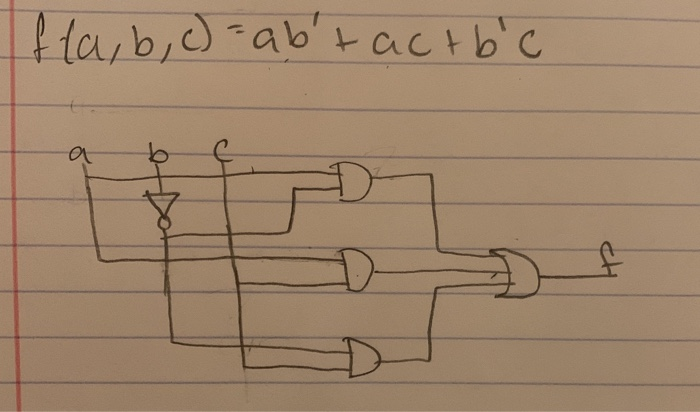 f(a,b,c) = ab' + ac + b'c
a b c
f